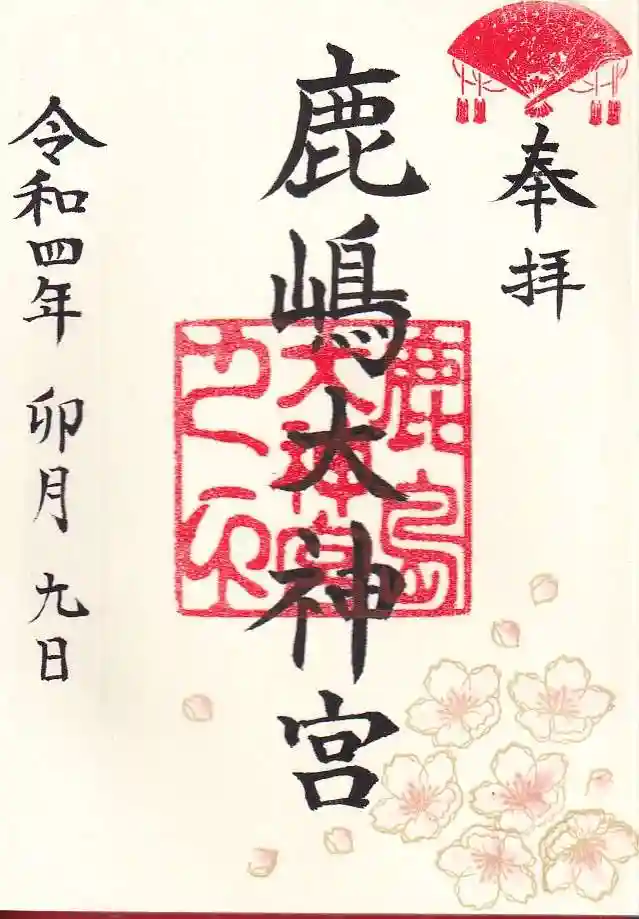 奉拝
鹿嶋大神宮
鹿島
大神宮
之印
令和四年 卯月 九日